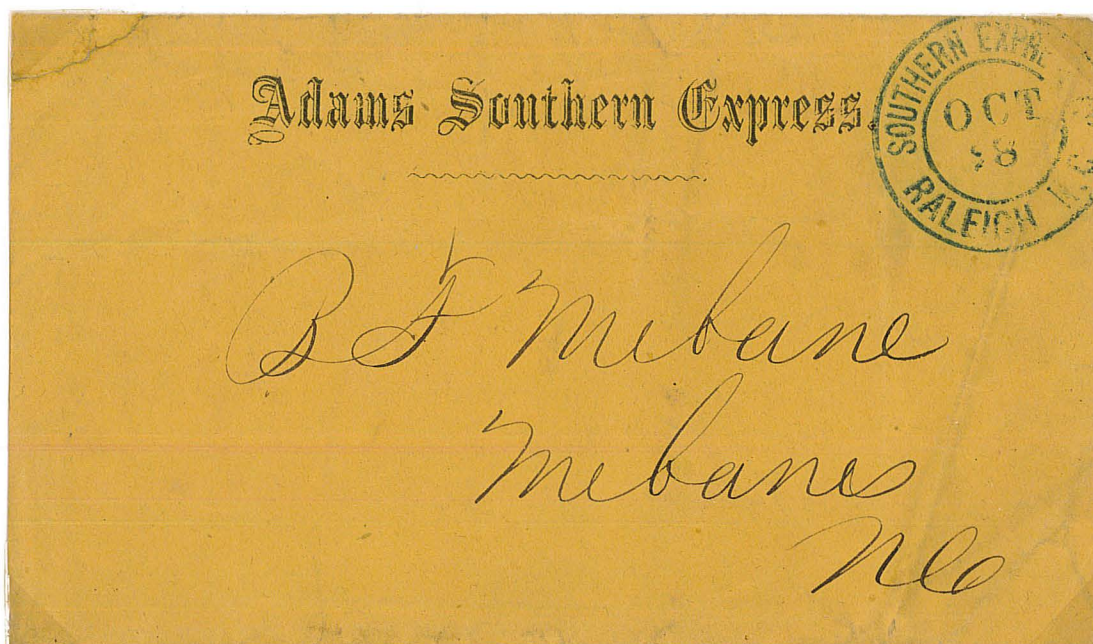 Adams Southern Express.
SOUTHERN EXPRE
OCT
8
RALEIGH N.C
B F Mebane
Mebanes
NC